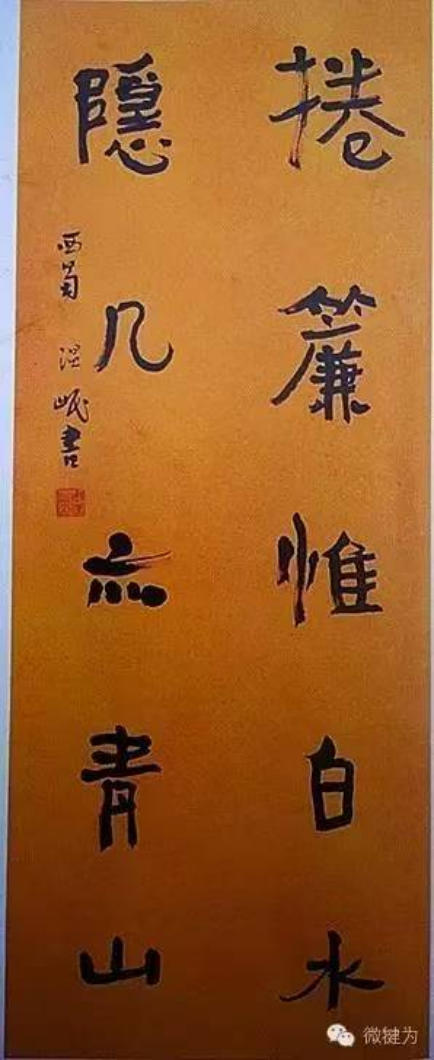 捲簾惟白水
隱几亦青山
西蜀 温岷書
微犍为